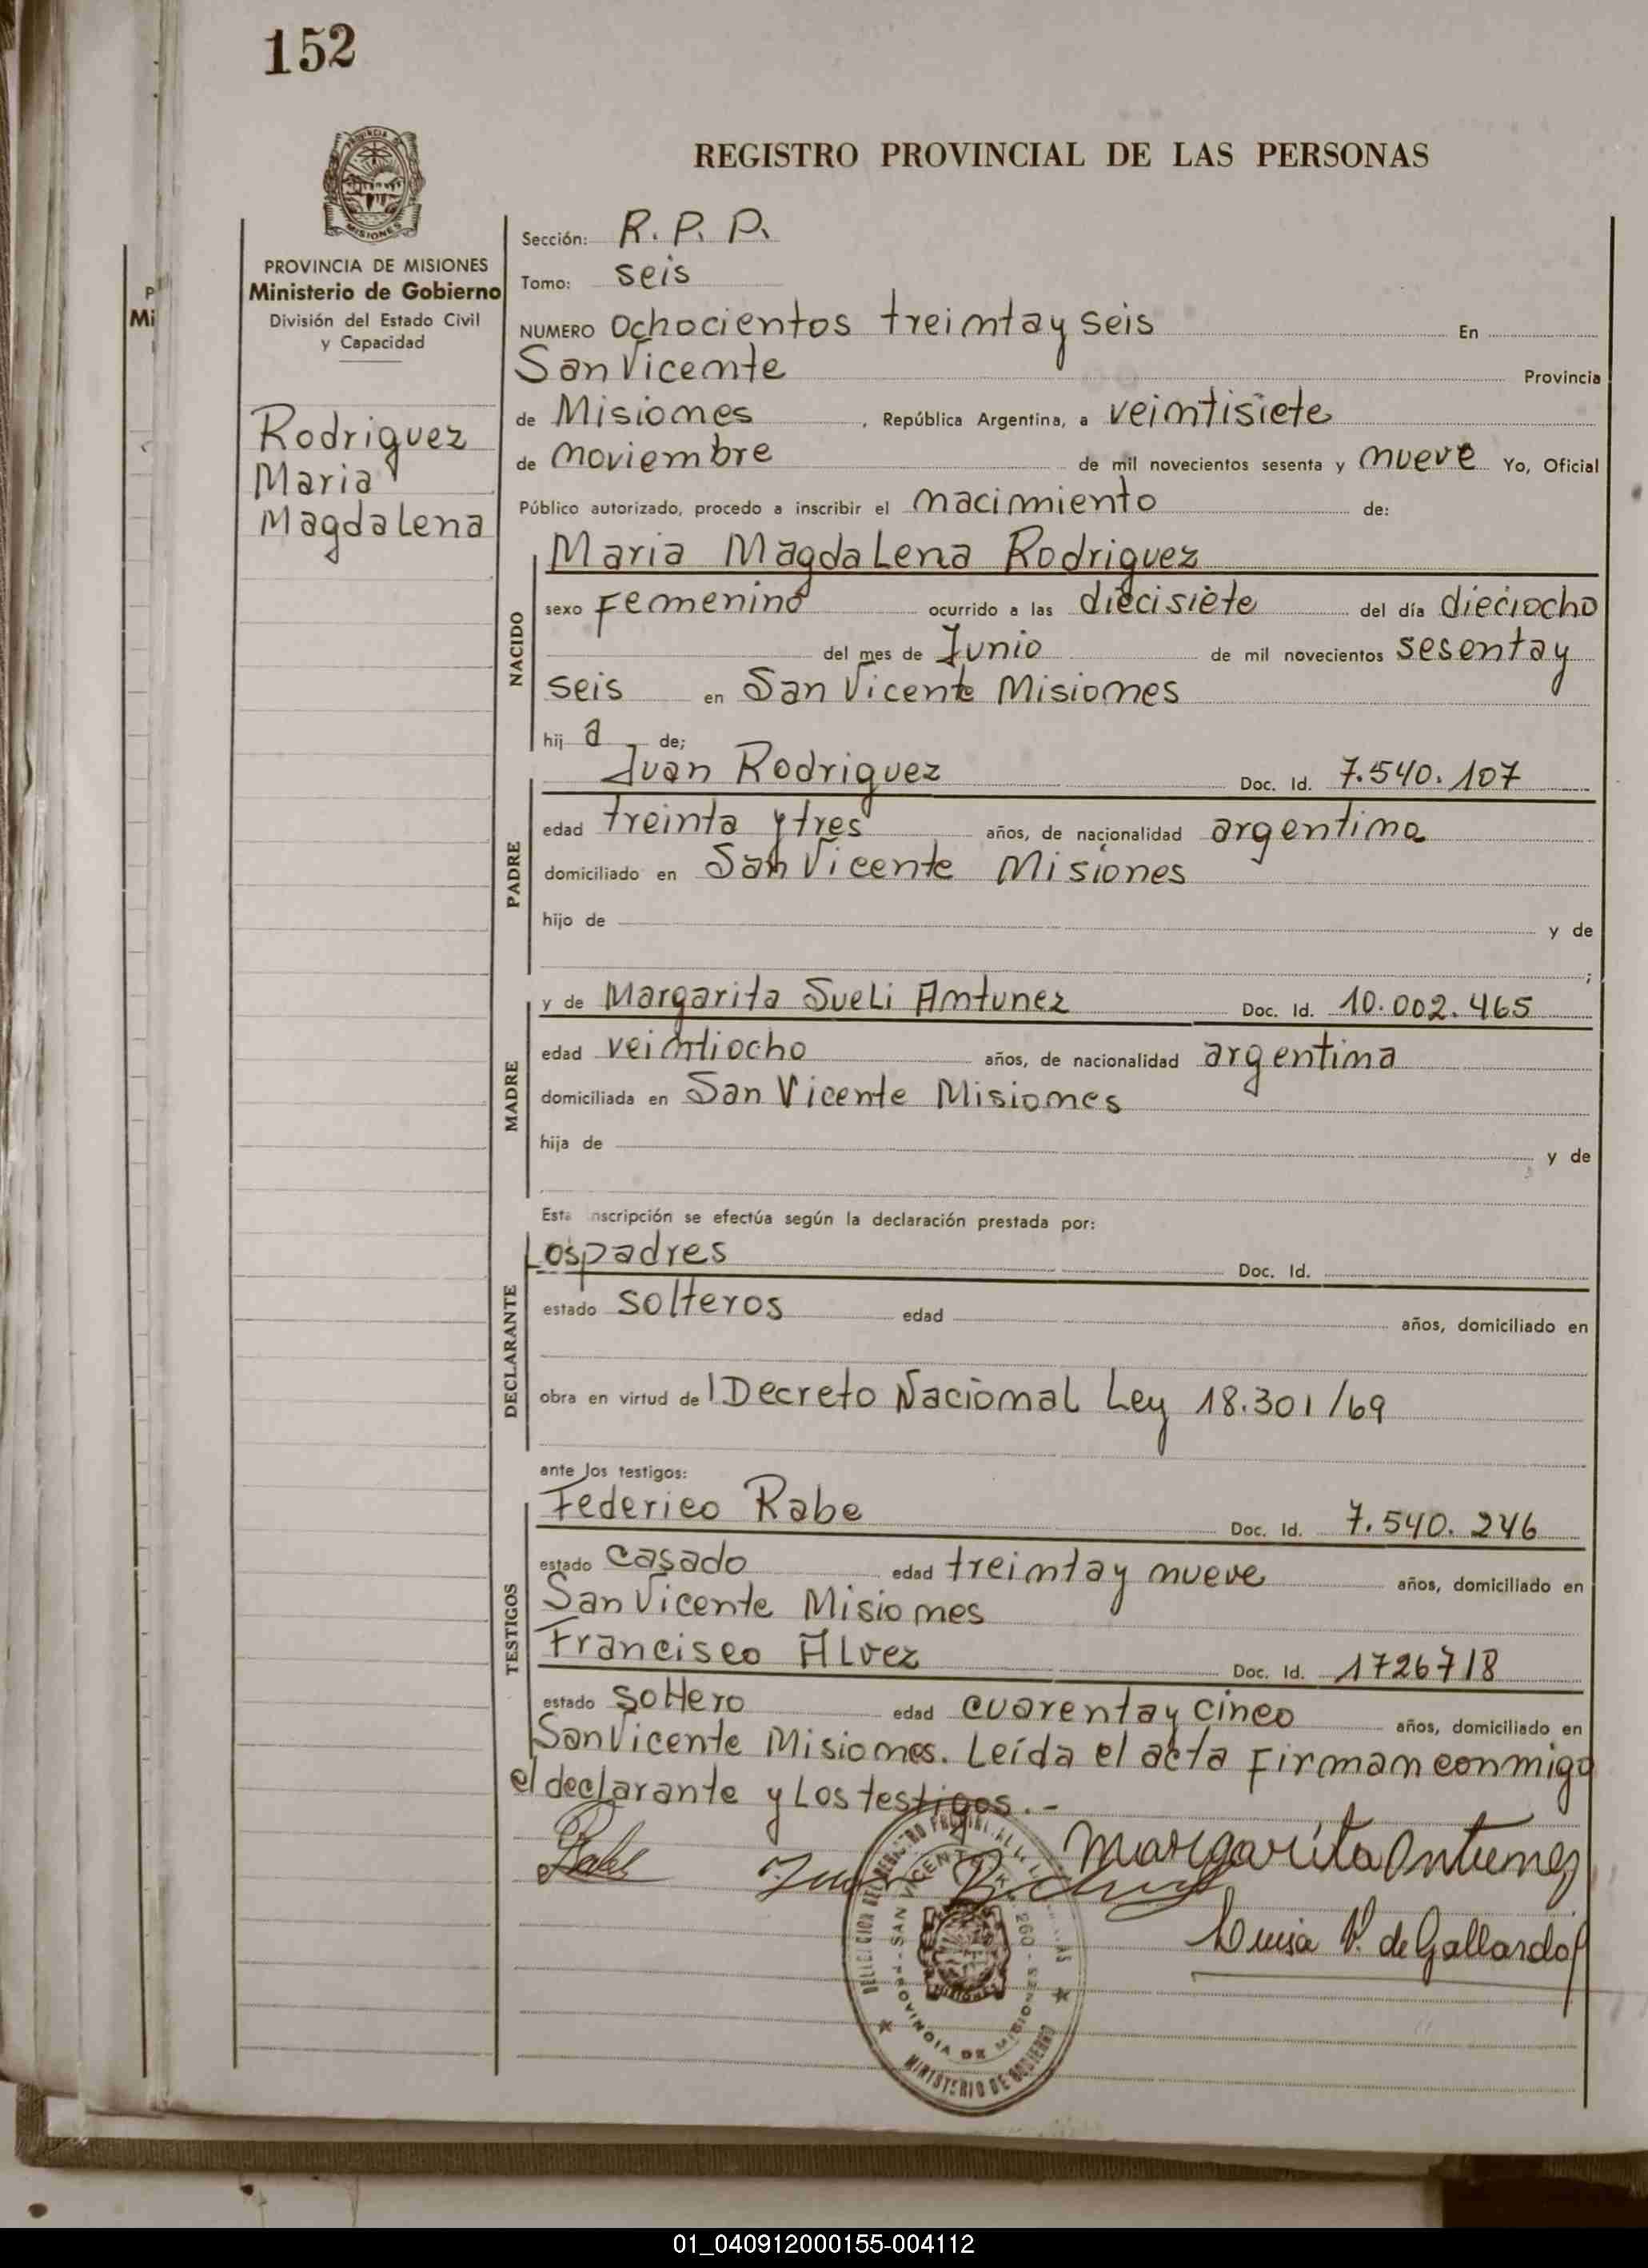 152
REGISTRO PROVINCIAL DE LAS PERSONAS
PROVINCIA
MISIONES
PROVINCIA DE MISIONES
Ministerio de Gobierno
División del Estado Civil
y Capacidad
P
Mi
Rodriguez
Maria
Magdalena
Sección: R. P. P.
Tomo: seis
NUMERO ochocientos treinta y seis En
San Vicente Provincia
de Misiones, República Argentina, a veintisiete
de noviembre de mil novecientos sesenta y nueve Yo, Oficial
Público autorizado, procedo a inscribir el nacimiento de:
NACIDO
Maria Magdalena Rodriguez
sexo Femenino ocurrido a las diecisiete del día dieciocho
del mes de Junio de mil novecientos sesenta y
seis en San Vicente Misiones
hij a de;
PADRE
Juan Rodriguez Doc. Id. 7.540.107
edad treinta y tres años, de nacionalidad argentina
domiciliado en San Vicente Misiones
hijo de y de
;
MADRE
y de Margarita Sueli Antunez Doc. Id. 10.002.465
edad veintiocho años, de nacionalidad argentina
domiciliada en San Vicente Misiones
hija de y de
Esta inscripción se efectúa según la declaración prestada por:
DECLARANTE
Los padres Doc. Id.
estado solteros edad años, domiciliado en
obra en virtud de l Decreto Nacional Ley 18.301/69
ante los testigos:
TESTIGOS
Federico Rabe Doc. Id. 7.540.246
estado casado edad treinta y nueve años, domiciliado en
San Vicente Misiones
Francisco Alvez Doc. Id. 1726718
estado soltero edad cuarenta y cinco años, domiciliado en
San Vicente Misiones. Leída el acta Firman conmigo
el declarante y Los testigos.-
Rabe Margarita Antunez
Luisa V. de Gallardo
SAN VICENTE
260
PROVINCIA DE MISIONES
MISIONES
MINISTERIO DE GOBIERNO
01_040912000155-004112